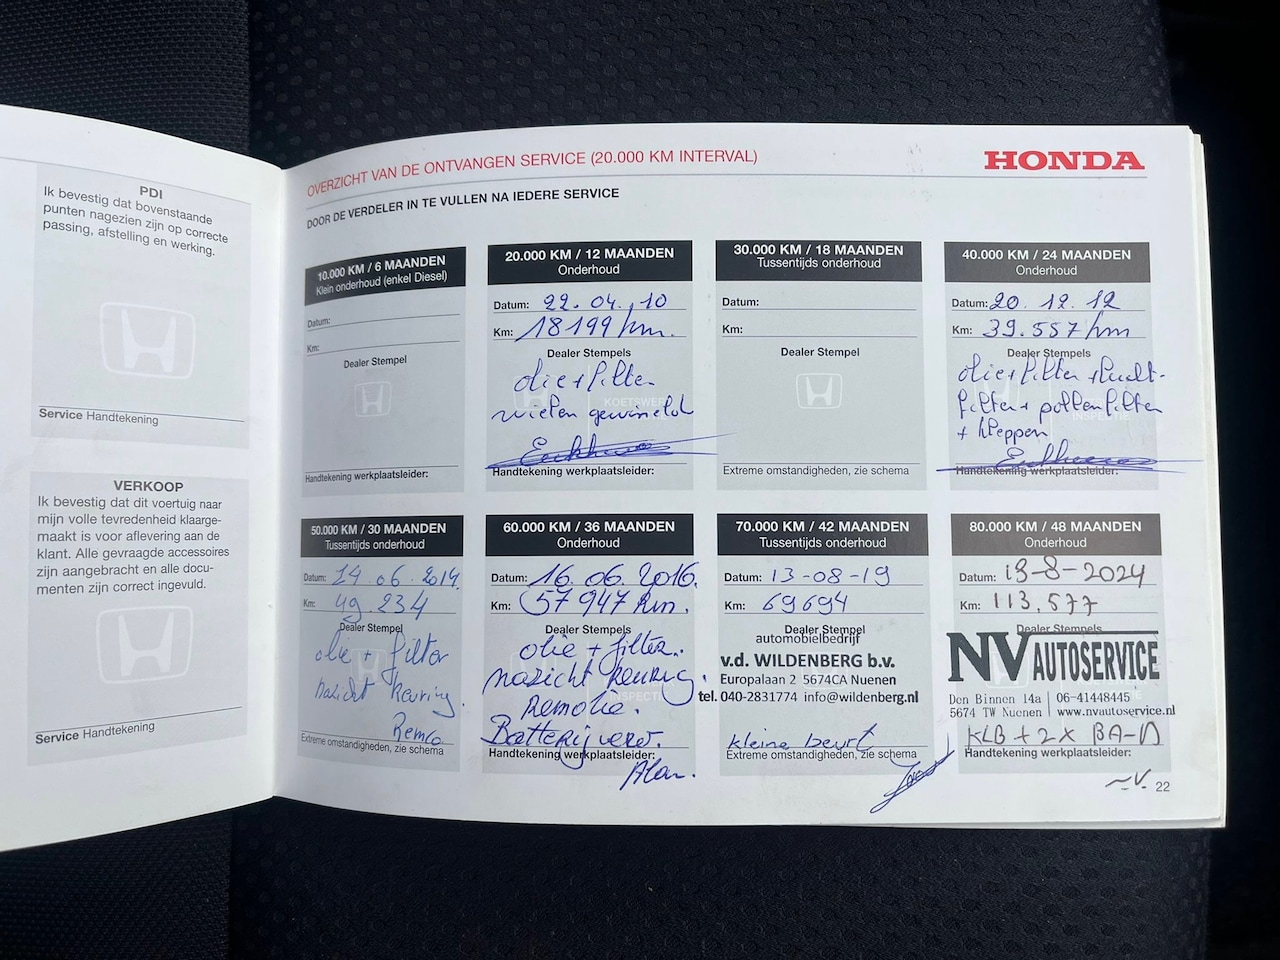 PDI
Ik bevestig dat bovenstaande
punten nagezien zijn op correcte
passing, afstelling en werking.
Service Handtekening
VERKOOP
Ik bevestig dat dit voertuig naar
mijn volle tevredenheid klaarge-
maakt is voor aflevering aan de
klant. Alle gevraagde accessoires
zijn aangebracht en alle docu-
menten zijn correct ingevuld.
Service Handtekening
OVERZICHT VAN DE ONTVANGEN SERVICE (20.000 KM INTERVAL)
HONDA
DOOR DE VERDELER IN TE VULLEN NA IEDERE SERVICE
10.000 KM / 6 MAANDEN
Klein onderhoud (enkel Diesel)
Datum:
Km:
Dealer Stempel
Handtekening werkplaatsleider:
20.000 KM / 12 MAANDEN
Onderhoud
Datum: 22.04.10
Km: 18199 km.
Dealer Stempels
olie + filter
wielen gewisseld
Handtekening werkplaatsleider:
30.000 KM / 18 MAANDEN
Tussentijds onderhoud
Datum:
Km:
Dealer Stempel
Extreme omstandigheden, zie schema
40.000 KM / 24 MAANDEN
Onderhoud
Datum: 20.12.12
Km: 39.557 km
Dealer Stempels
olie + filter + lucht-
filter + pollenfilter
+ kleppen
Handtekening werkplaatsleider:
50.000 KM / 30 MAANDEN
Tussentijds onderhoud
Datum: 24.06.2014.
Km: 49.234
Dealer Stempel
olie + filter
nazicht keuring.
Remco
Extreme omstandigheden, zie schema
60.000 KM / 36 MAANDEN
Onderhoud
Datum: 16.06.2016.
Km: 57947 km.
Dealer Stempels
olie + filter.
nazicht keuring.
Remolie.
Batterij verv.
Handtekening werkplaatsleider:
Alan.
70.000 KM / 42 MAANDEN
Tussentijds onderhoud
Datum: 13-08-19
Km: 69694
Dealer Stempel
automobielbedrijf
v.d. WILDENBERG b.v.
Europalaan 2 5674CA Nuenen
tel. 040-2831774 info@wildenberg.nl
kleine beurt
Extreme omstandigheden, zie schema
80.000 KM / 48 MAANDEN
Onderhoud
Datum: 13-8-2024
Km: 113.577
Dealer Stempels
NV AUTOSERVICE
Den Binnen 14a | 06-41448445
5674 TW Nuenen | www.nvautoservice.nl
KLB + 2x BA-A
Handtekening werkplaatsleider:
22